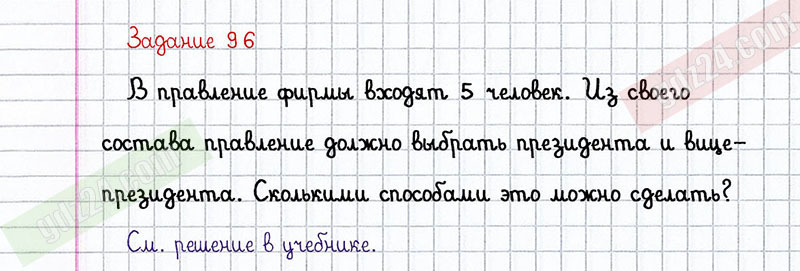 Задание 96
В правление фирмы входят 5 человек. Из своего
состава правление должно выбрать президента и вице-
президента. Сколькими способами это можно сделать?
См. решение в учебнике.
gdz24.com
gdz24.com